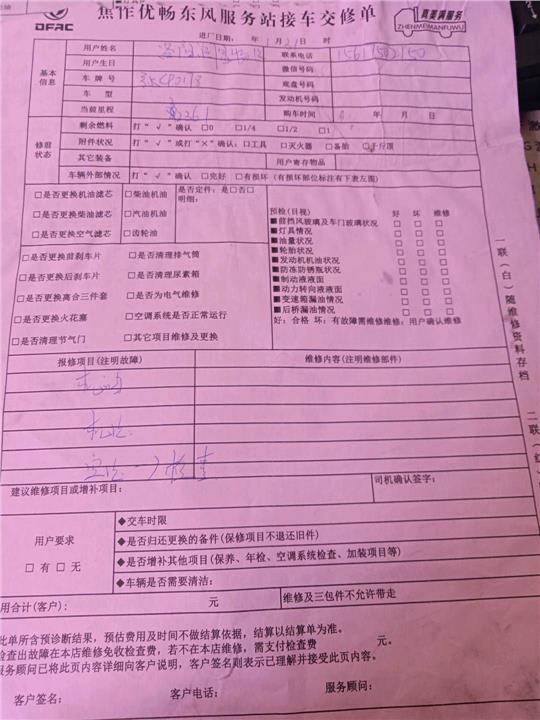 焦作优畅东风服务站接车交修单
DFAC
真美满服务
ZHENMEIMANFUWU
进厂日期: 年 1月21日 时
基本信息
用户姓名
联系电话
用户生日
微信号码
车牌号
底盘号码
车型
发动机号码
当前里程
购车时间 年 月 日
修前状态
剩余燃料 打“√”确认 □0 □1/4 □1/2 □1
附件状况 打“√”或打“×”确认:□工具 □灭火器 □备胎 □千斤顶
其它装备 用户寄存物品
车辆外部情况 打“√”确认 □完好 □有损坏(有损坏部位标注有下表左图)
□是否更换机油滤芯 □柴油机油
□是否更换柴油滤芯 □汽油机油
□是否更换空气滤芯 □齿轮油
是否定件: 是□否□
明细:
□是否更换前刹车片 □是否清理排气筒
□是否更换后刹车片 □是否清理尿素箱
□是否更换离合三件套 □是否为电气维修
□是否更换火花塞 □空调系统是否正常运行
□是否清理节气门 □其它项目维修及更换
预检(目视) 好 坏 维修
■前挡风玻璃及车门玻璃状况 □ □ □
■灯具情况 □ □ □
■油量状况 □ □ □
■轮胎状况 □ □ □
■发动机机油状况 □ □ □
■防冻防锈瓶状况 □ □ □
■制动液液面 □ □ □
■动力转向液液面 □ □ □
■变速箱漏油情况 □ □ □
■后桥漏油情况 □ □ □
好:合格 坏:有故障需维修维修:用户确认维修
报修项目(注明故障) 维修内容(注明维修部件)
建议维修项目或增补项目:
司机确认签字:
用户要求
□有 □无
◆交车时限
◆是否归还更换的备件(保修项目不退还旧件)
◆是否增补其他项目(保养、年检、空调系统检查、加装项目等)
◆车辆是否需要清洁:
用合计(客户): 元
维修及三包件不允许带走
此单所含预诊断结果,预估费用及时间不做结算依据,结算以结算单为准。
检查出故障在本店维修免收检查费,若不在本店维修,需支付检查费 元。
服务顾问已将此页内容详细向客户说明,客户签名则表示已理解并接受此页内容。
客户签名: 客户电话: 服务顾问:
一联(白)随维修资料存档
二联(红)